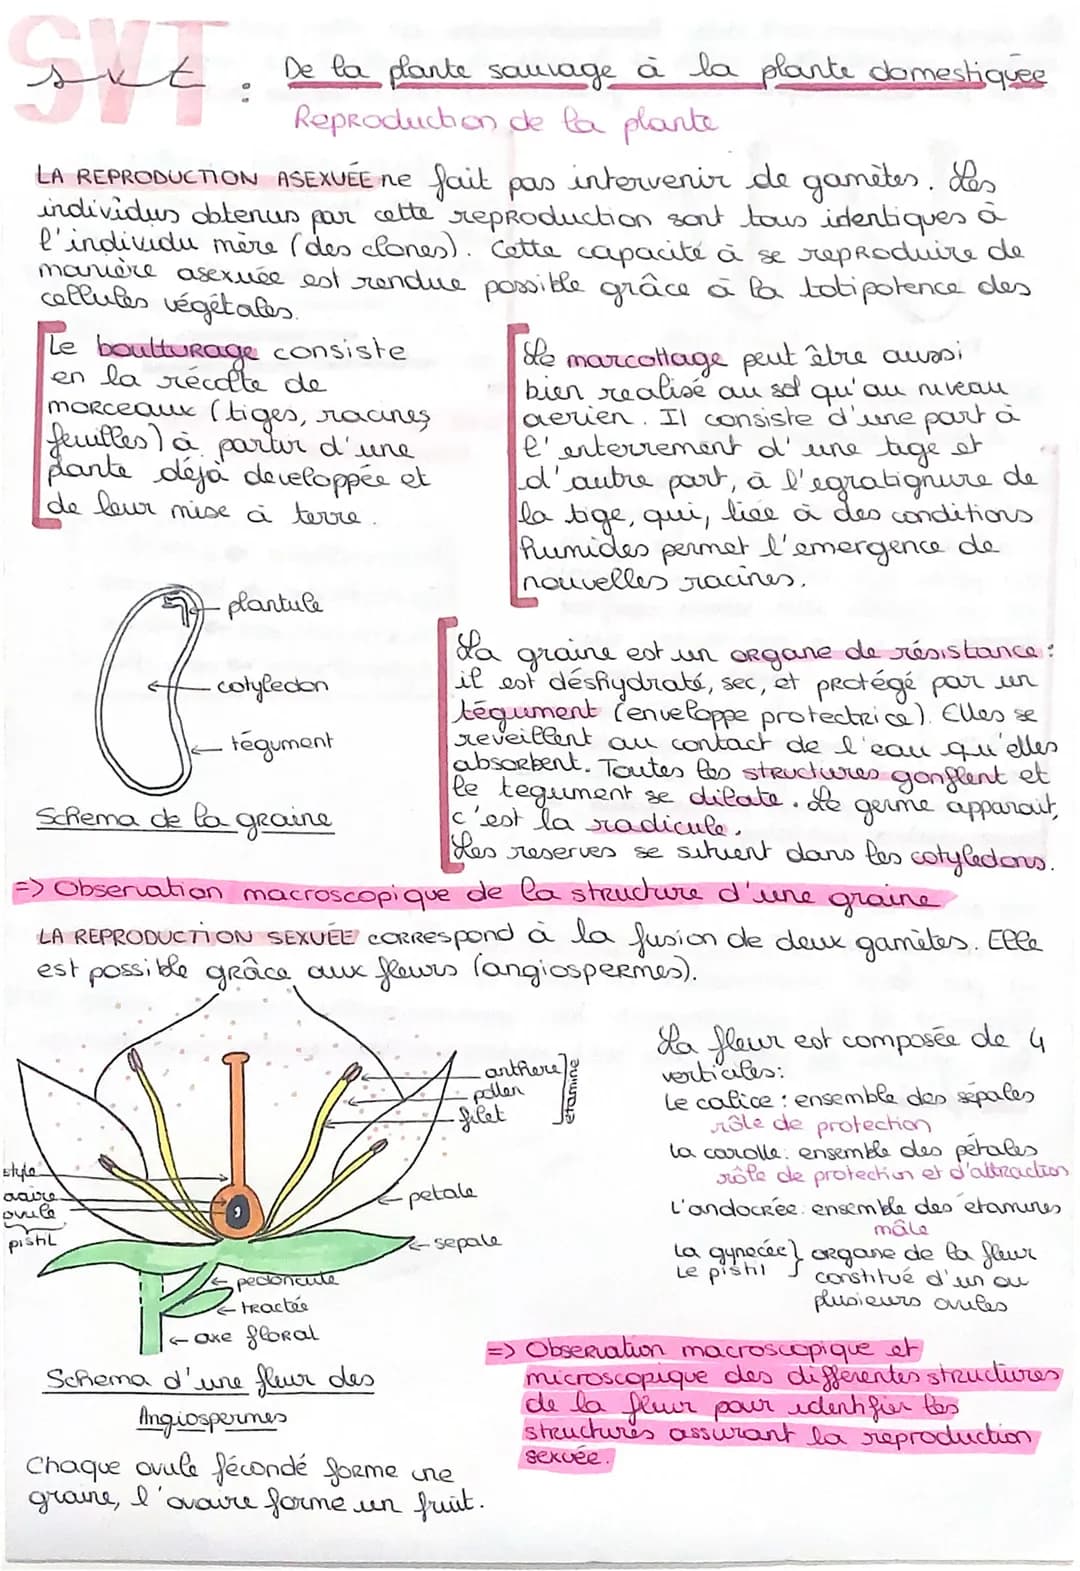 SVT
svt : De la plante sauvage à la plante domestiquée
Reproduction de la plante
LA REPRODUCTION ASEXUÉE ne fait pas intervenir de gamètes. Les
individus obtenus par cette reproduction sont tous identiques à
l'individu mère (des clones). Cette capacité à se reproduire de
manière asexuée est rendue possible grâce à la totipotence des
cellules végétales.
Le boulturage consiste
en la récolte de
morceaux (tiges, racines
feuilles) à partir d'une
plante déjà developpée et
de leur mise à terre.
Le marcottage peut être aussi
bien realisé au sol qu'au niveau
aerien. Il consiste d'une part à
l'enterrement d'une tige et
d'autre part, à l'egratignure de
la tige, qui, liée à des conditions
humides permet l'emergence de
nouvelles racines.
plantule
cotyledon
tégument
Schema de la graine
La graine est un organe de résistance :
il est déshydraté, sec, et protégé par un
tégument (enveloppe protectrice). Elles se
reveillent au contact de l'eau qu'elles
absorbent. Toutes les structures gonflent et
le tegument se dilate. Le germe apparait,
c'est la radicule.
Les reserves se situent dans les cotyledons.
=> Observation macroscopique de la structure d'une graine
LA REPRODUCTION SEXUÉE correspond à la fusion de deux gamètes. Elle
est possible grâce aux fleurs (angiospermes).
anthere
pollen
filet
étamine
style
ovaire
ovule
pistil
petale
sepale
pedoncule
tractée
axe floral
Schema d'une fleur des
Angiospermes
Chaque ovule fécondé forme une
graine, l'ovaire forme un fruit.
La fleur est composée de 4
verticales:
Le calice : ensemble des sépales
rôle de protection
la corolle: ensemble des pétales
rôle de protection et d'attraction
L'andocrée: ensemble des étamines
mâle
La gynecée } organe de la fleur
Le pistil constitué d'un ou
plusieurs ovules
=> Observation macroscopique et
microscopique des differentes structures
de la fleur pour identifier les
structures assurant la reproduction
sexuée.